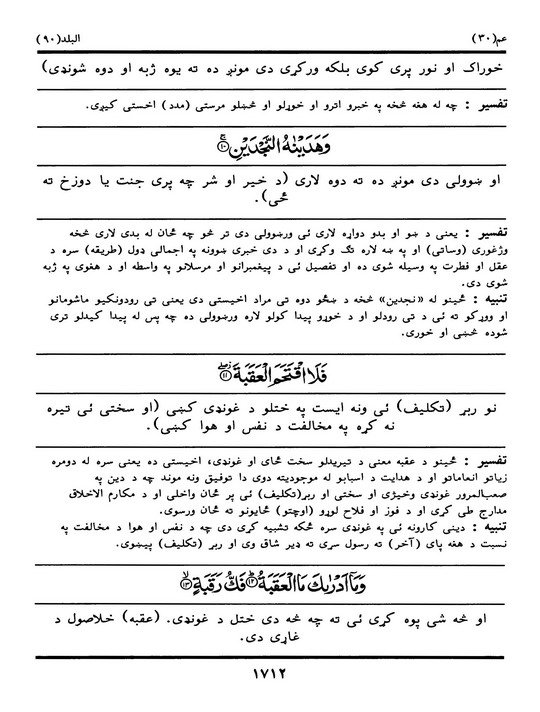 عم(۳۰) البلد(۹۰)
خوراک او نور پری کوی بلکه ورکړی دی مونږ ده ته یوه ژبه او دوه شونډی)
تفسیر : چه له هغه څخه په خبرو اترو او خوړلو او څښلو مرستی (مدد) اخستی کیږی.
وَهَدَيْنٰهُ النَّجْدَيْنِ ﴿١٠﴾
او ښوولی دی مونږ ده ته دوه لاری (د خیر او شر چه پری جنت یا دوزخ ته
ځی).
تفسیر : یعنی د ښو او بدو دواړه لاری ئی ورښوولی دی تر څو چه ځان له بدی لاری څخه
وژغوری (وساتی) او په ښه لاره تګ وکړی او د دی خبری ښوونه په اجمالی ډول (طریقه) سره د
عقل او فطرت په وسیله شوی ده او تفصیل ئی د پیغمبرانو او مرسلانو په واسطه او د هغوی په ژبه
شوی دی.
تنبیه : ځینو له «نجدین» څخه د ښځو دوه تی مراد اخیستی دی یعنی تی رودونکیو ماشومانو
او ووړکو ته ئی د تی رودلو او د خوړو پیدا کولو لاره ورښوولی ده چه پس له پیدا کیدلو تری
شوده څښی او خوری.
فَلَا اقْتَحَمَ الْعَقَبَةَ ﴿١١﴾
نو ربړ (تکلیف) ئی ونه ایست په ختلو د غونډی کښی (او سختی ئی تیره
نه کړه په مخالفت د نفس او هوا کښی).
تفسیر : ځینو د عقبه معنی د تیریدلو سخت ځای او غونډی، اخیستی ده یعنی سره له دومره
زیاتو انعاماتو او د هدایت د اسبابو له موجودیته دوی دا توفیق ونه موند چه د دین په
صعب‌المرور غونډی وخیژی او سختی او ربړ(تکلیف) ئی پر ځان واخلی او د مکارم الاخلاق
مدارج طی کړی او د فوز او فلاح لوړو (اوچتو) ځایونو ته ځان ورسوی.
تنبیه : دینی کارونه ئی په غونډی سره ځکه تشبیه کړی دی چه د نفس او هوا د مخالفت په
نسبت د هغه پای (آخر) ته رسول سړی ته ډیر شاق وی او ربړ (تکلیف) پیښوی.
وَمَآ اَدْرٰىكَ مَا الْعَقَبَةُ ﴿١٢﴾ فَكُّ رَقَبَةٍ ﴿١٣﴾
او څه شی پوه کړی ئی ته چه څه دی ختل د غونډی. (عقبه) خلاصول د
غاړی دی.
۱۷۱۲